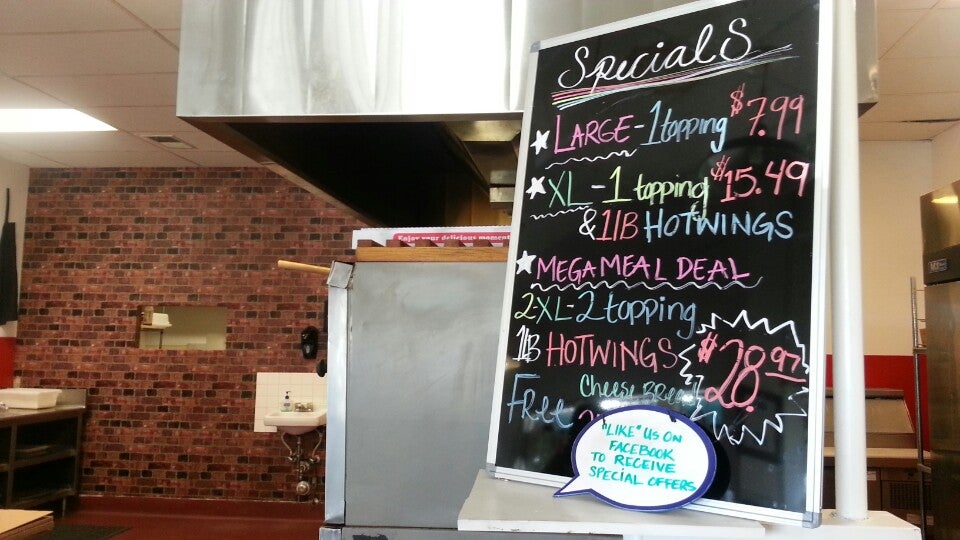 Specials
LARGE - 1 topping $7.99
XL - 1 topping $15.49
& 1 lB HOTWINGS
MEGA MEAL DEAL
2-XL-2 topping
1lB HOTWINGS $28.97
Free Cheese Bread
"LIKE" US ON
FACEBOOK
TO RECEIVE
SPECIAL OFFERS
Enjoy your delicious moment